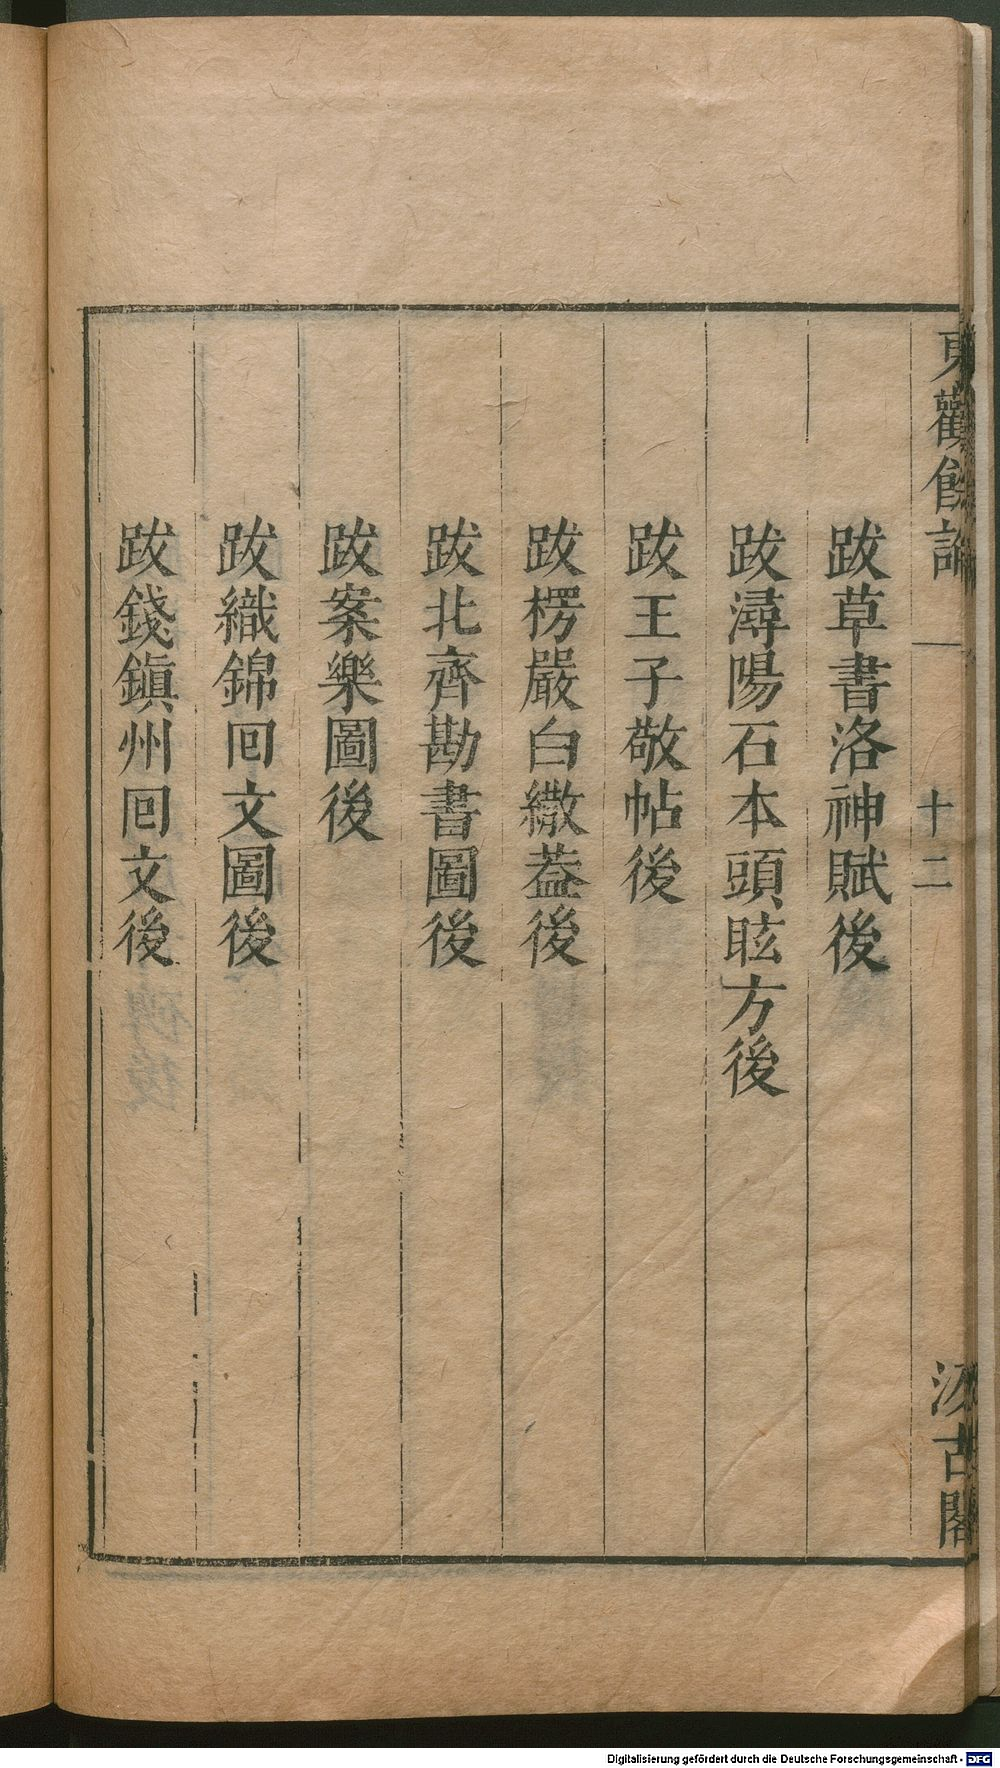 東觀餘論
十二
汲古閣
跋草書洛神賦後
跋潯陽石本頭眩方後
跋王子敬帖後
跋楞嚴白繖蓋後
跋北齊勘書圖後
跋案樂圖後
跋織錦回文圖後
跋錢鎭州回文後
Digitalisierung gefördert durch die Deutsche Forschungsgemeinschaft - DFG